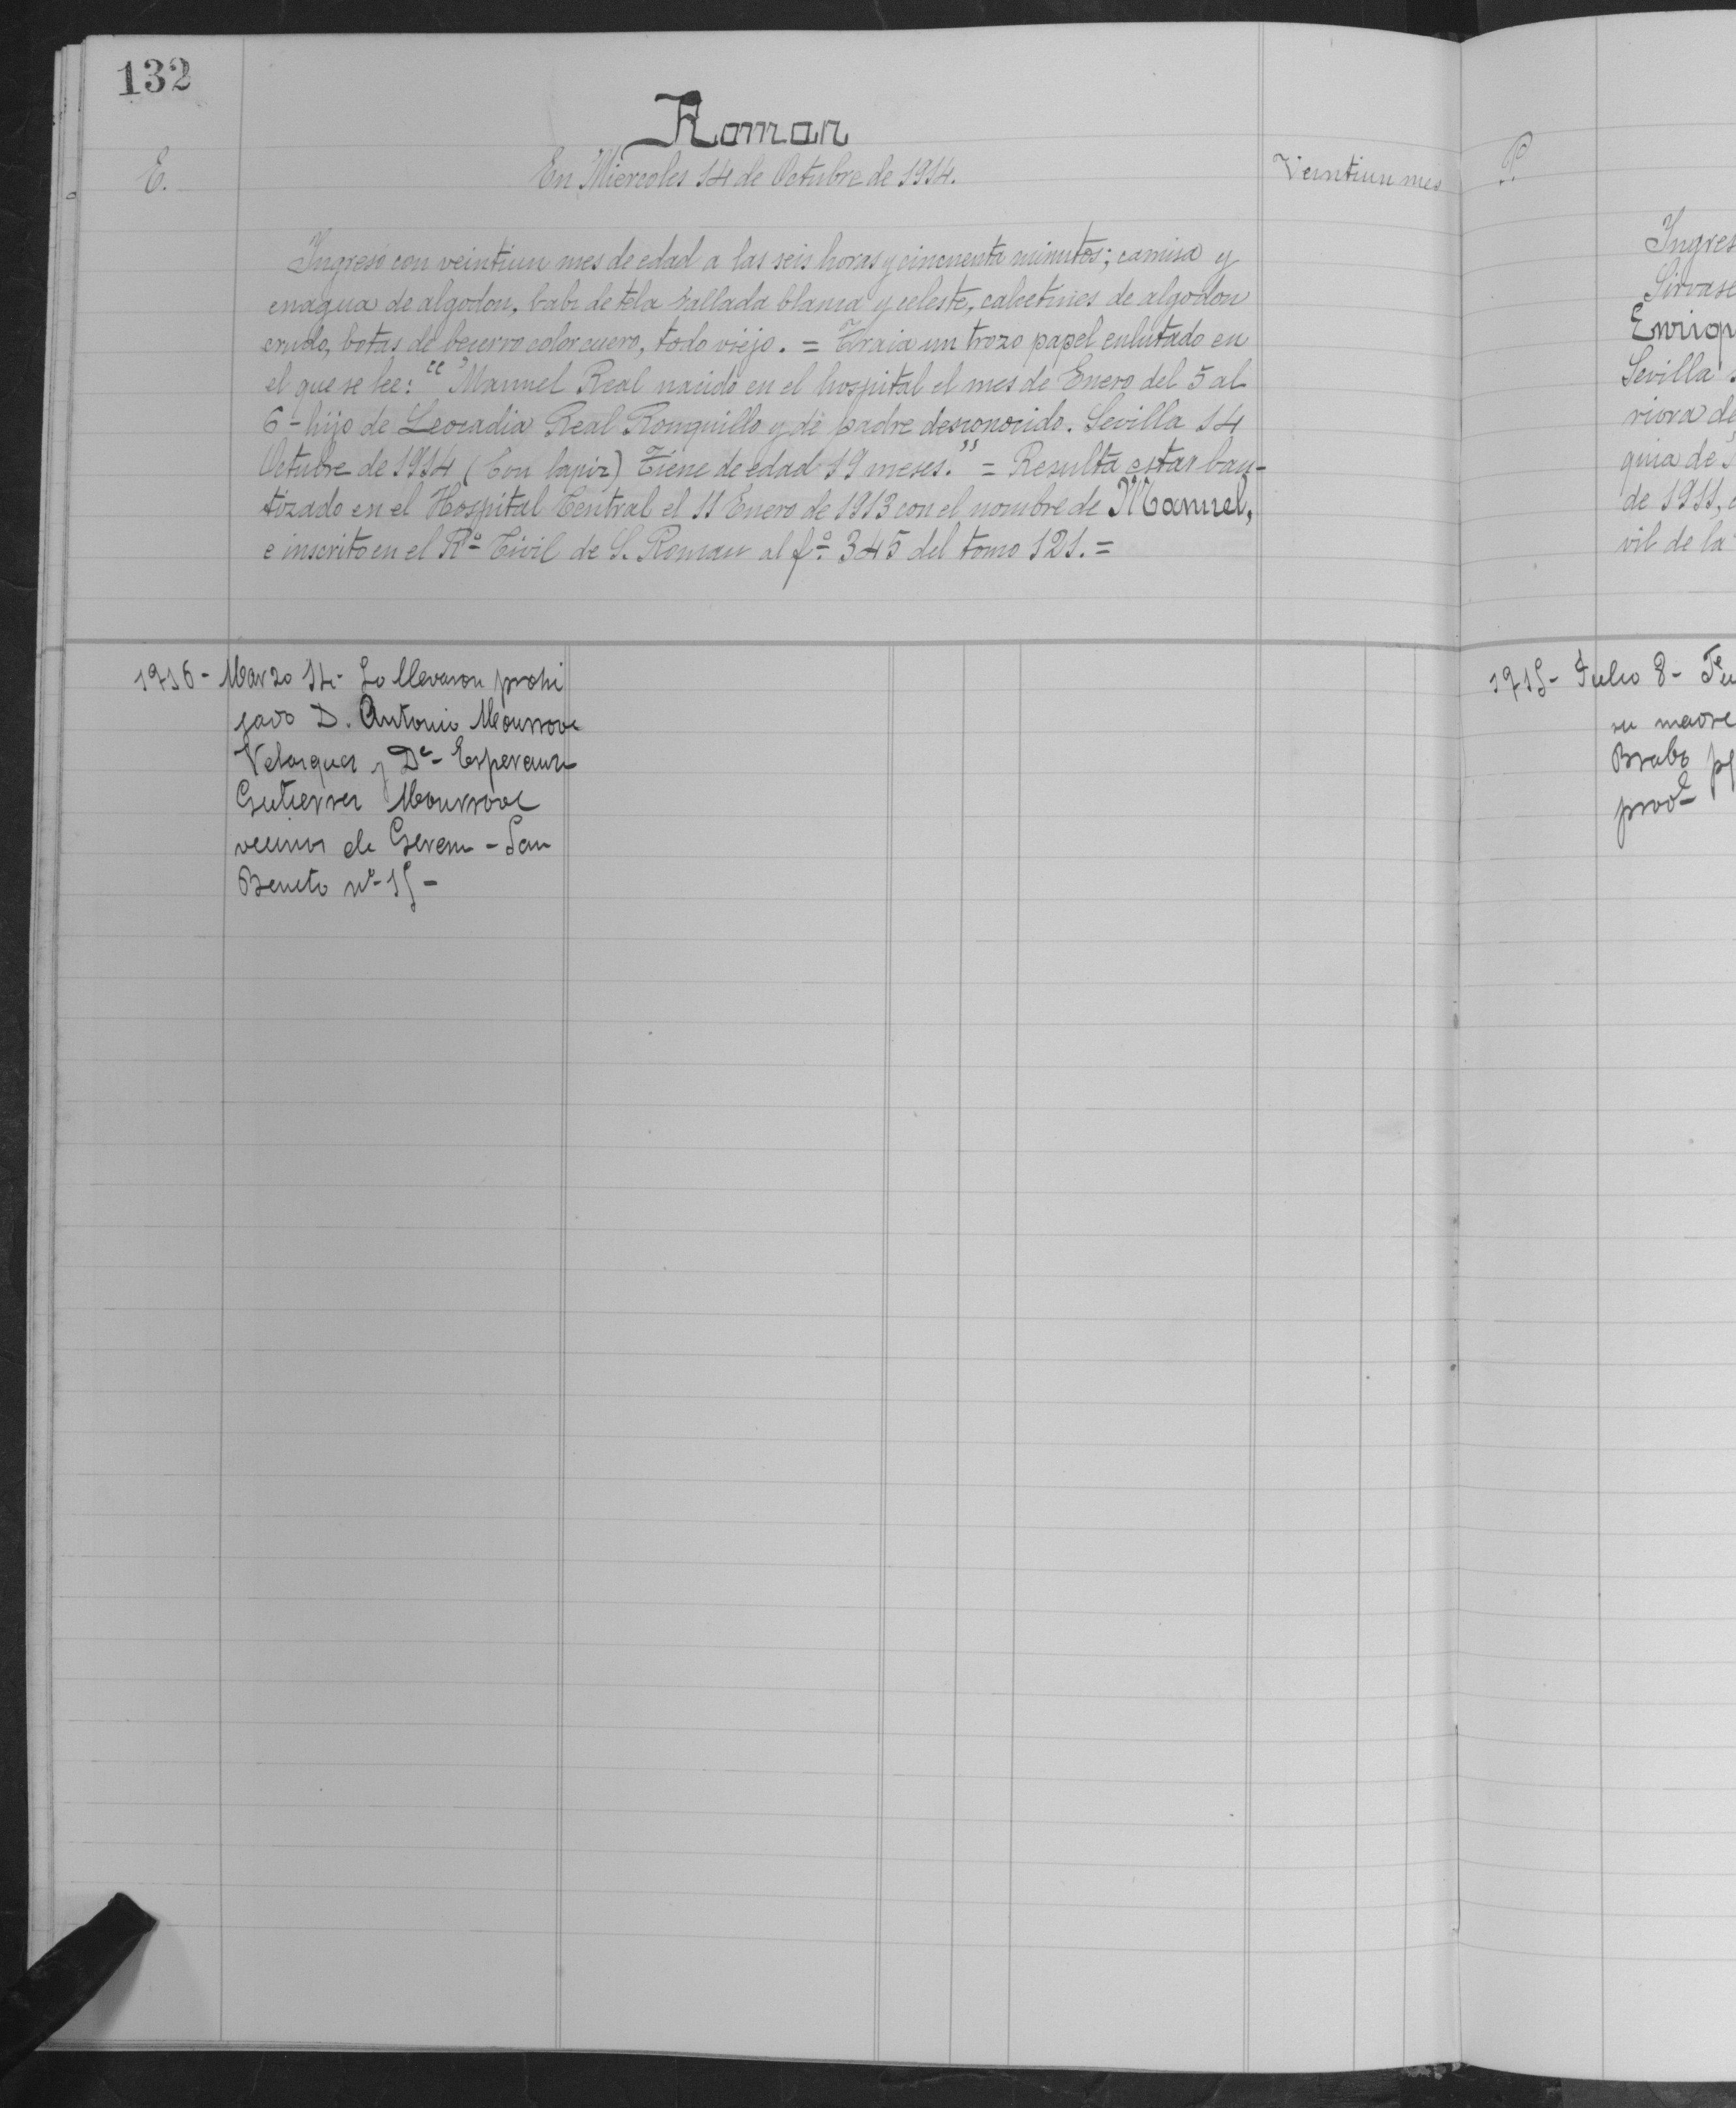 132
Roman
E.
En Miercoles 14 de Octubre de 1914.
Veintiun mes
Ingresó con veintiun mes de edad a las seis horas y cincuenta minutos; camisa y
enagua de algodon, babi de tela rallada blanca y celeste, calcetines de algodon
crudo, botas de becerro color cuero, todo viejo. = Traia un trozo papel enlutado en
el que se lee: "Manuel Real nacido en el hospital el mes de Enero del 5 al
6 - hijo de Leocadia Real Ronquillo y de padre desconocido. Sevilla 14
Octubre de 1914 (Con lapiz) Tiene de edad 19 meses." = Resulta estar bau-
tizado en el Hospital Central el 11 Enero de 1913 con el nombre de Manuel,
e inscrito en el Rº Civil de S. Roman al fº 345 del tomo 121. =
1916 - Marzo 14 - Lo llevaron prohi
jado D. Antonio
Velasquez y Dª Esperanza
Gutierrez
vecinos de Gerena - San
Benito nº 15 -
P.
Ingres
Sirvase
Enriq
Sevilla
riora de
quia de
de 1911,
vil de la
1915 - Julio 8 -
su madre
Brabo